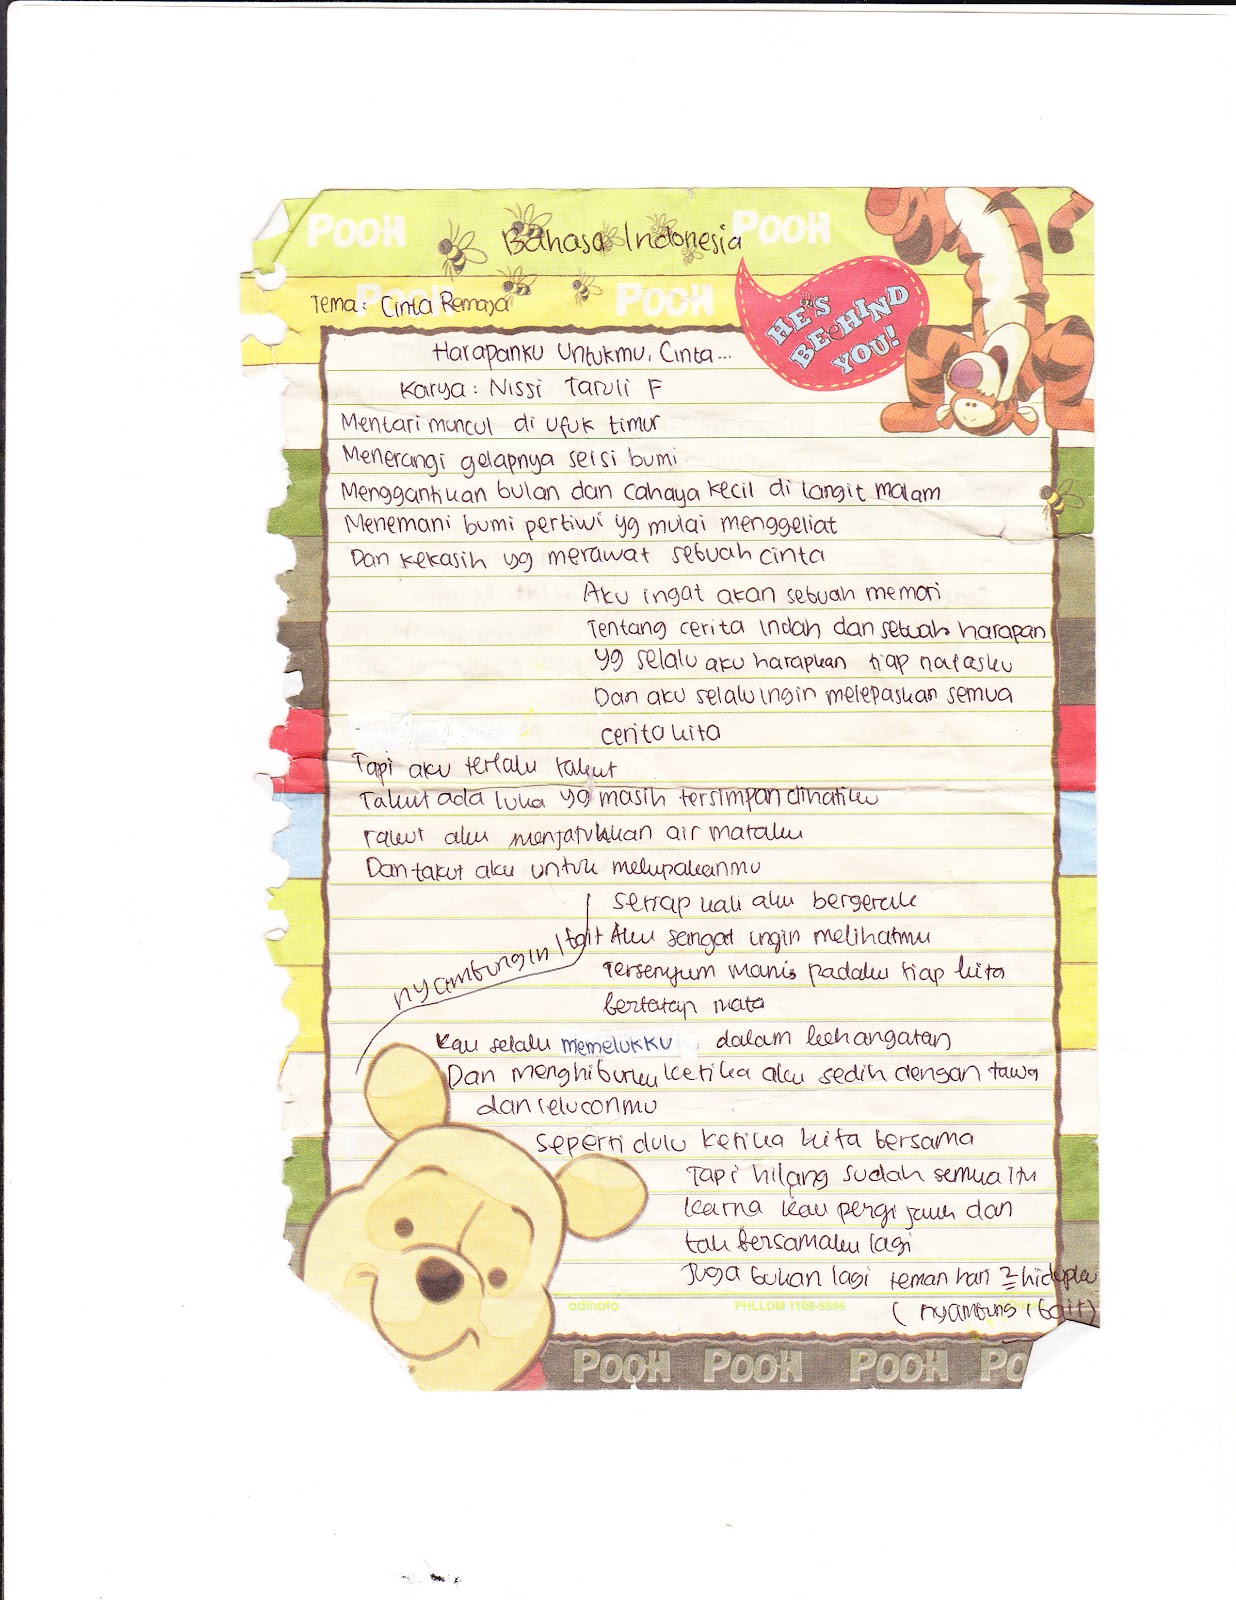 POOH
Bahasa Indonesia
POOH
POOH
POOH
HE'S
BEEHIND
YOU!
Tema: Cinta Remaja
Harapanku Untukmu, Cinta...
Karya: Nissi Taruli F
Mentari muncul di ufuk timur
Menerangi gelapnya seisi bumi
Menggantikan bulan dan cahaya kecil di langit malam
Menemani bumi pertiwi yg mulai menggeliat
Dan kekasih yg merawat sebuah cinta
Aku ingat akan sebuah memori
Tentang cerita indah dan sebuah harapan
yg selalu aku harapkan tiap nafasku
Dan aku selalu ingin melepaskan semua
cerita kita
Tapi aku terlalu takut
Takut ada luka yg masih tersimpan dihatiku
Takut aku menjatuhkan air mataku
Dan takut aku untuk melupakanmu
Setiap kali aku bergerak
Aku sangat ingin melihatmu
Tersenyum manis padaku tiap kita
bertatap mata
nyambungin 1 bait
Kau selalu memelukku dalam kehangatan
Dan menghiburku ketika aku sedih dengan tawa
dan leluconmu
Seperti dulu ketika kita bersama
Tapi hilang sudah semua itu
Karna kau pergi jauh dan
tak bersamaku lagi
Juga bukan lagi teman hari 2 hidupku
( nyambung 1 bait)
adinata
PHLLDM 1108-5656
POOH POOH POOH PO